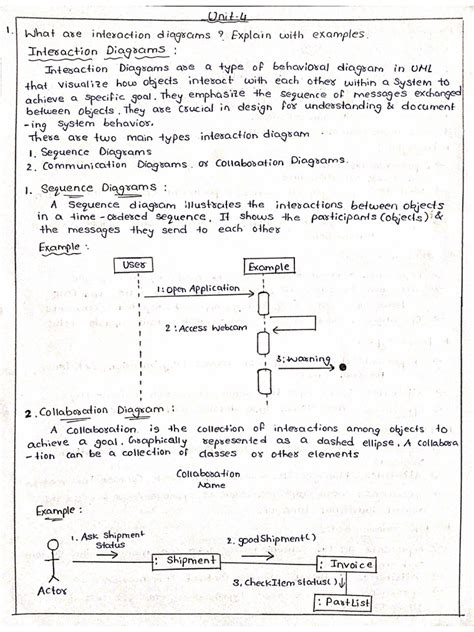 Unit-4
1. What are interaction diagrams ? Explain with examples.
Interaction Diagrams :
Interaction Diagrams are a type of behavioral diagram in UML
that visualize how objects interact with each other within a System to
achieve a specific goal. They emphasize the sequence of messages exchanged
between objects. They are crucial in design for understanding & document
-ing system behavior.
There are two main types interaction diagram
1. Sequence Diagrams
2. Communication Diagrams. or Collaboration Diagrams.
1. Sequence Diagrams :
A Sequence diagram illustrates the interactions between objects
in a time-ordered sequence. It shows the participants (objects) &
the messages they send to each other
Example :
User
Example
1: Open Application
2 : Access Webcam
3: warning
2. Collaboration Diagram :
A Collaboration is the collection of interactions among objects to
achieve a goal. Graphically represented as a dashed ellipse. A collabora
-tion can be a collection of classes or other elements
Collaboration
Name
Example :
1. Ask Shipment
Status
2. goodShipment()
: Shipment
: Invoice
Actor
3. CheckItem status()
: PartList